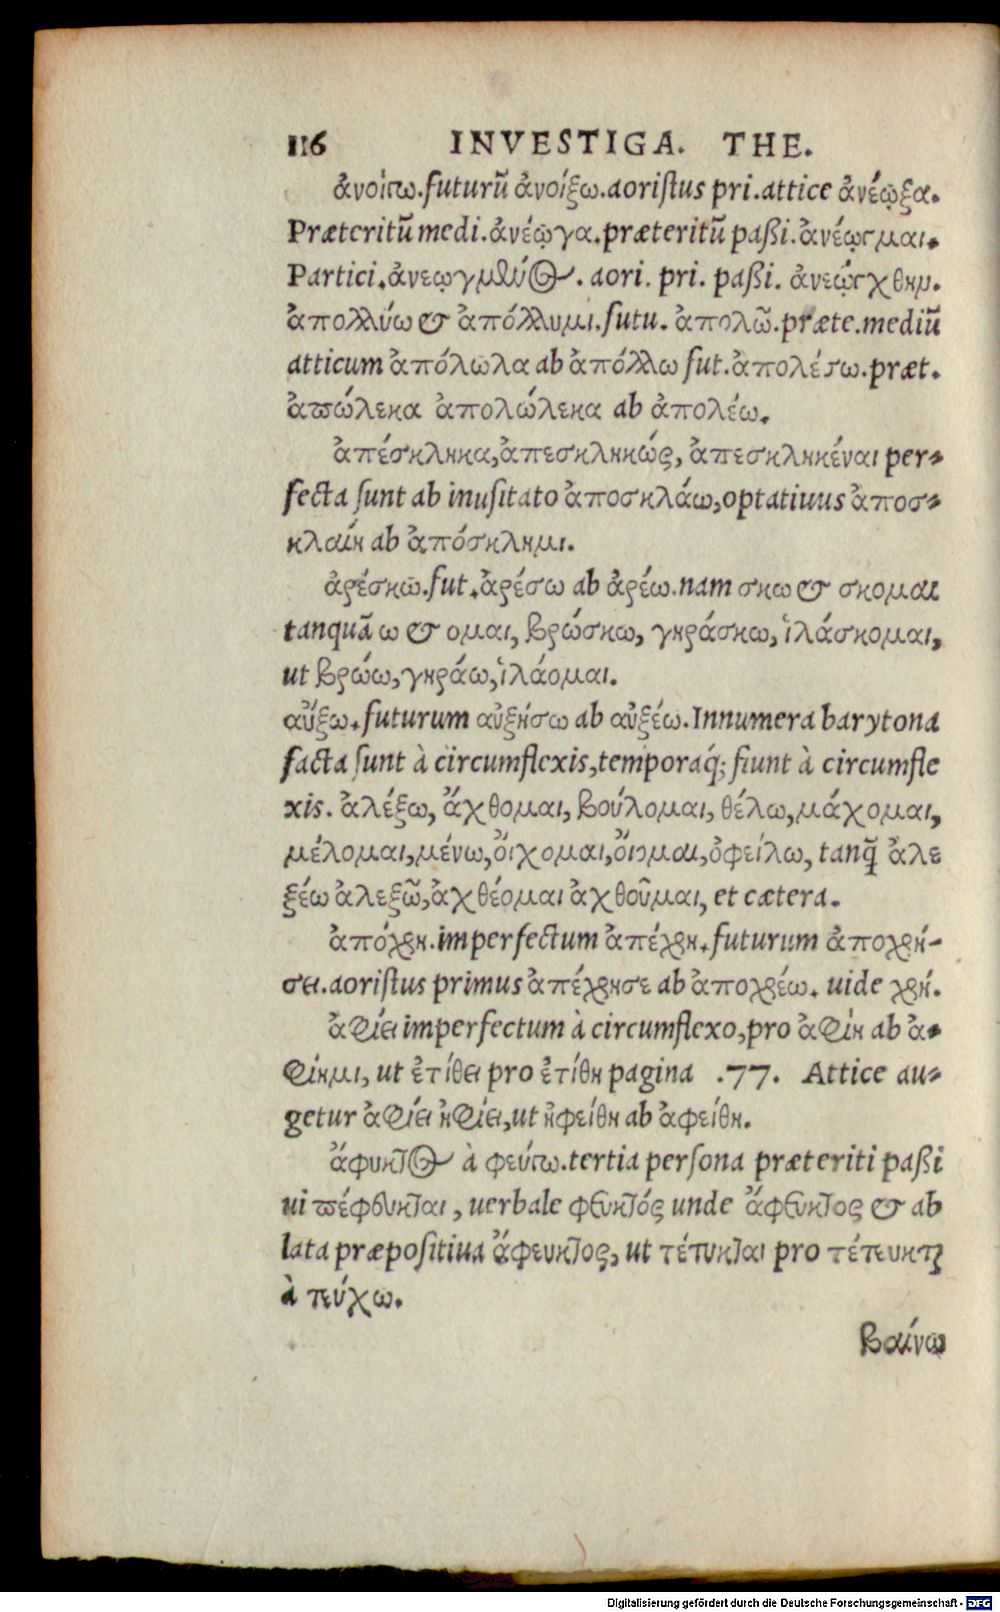 116 INVESTIGA. THE.
ἀνοίγω. futurũ ἀνοίξω. aoristus pri. attice ἀνέῳξα.
Præteritũ medi. ἀνέῳγα. præteritũ paßi. ἀνέῳγμαι.
Partici. ἀνεῳγμένος. aori. pri. paßi. ἀνεῴχθην.
ἀπολλύω & ἀπόλλυμι. futu. ἀπολῶ. præte. mediũ
atticum ἀπόλωλα ab ἀπόλλω fut. ἀπολέσω. præt.
ἀπώλεκα ἀπολώλεκα ab ἀπολέω.
ἀπέσκληκα, ἀπεσκληκώς, ἀπεσκληκέναι per-
fecta sunt ab inusitato ἀποσκλάω, optatiuus ἀποσ-
κλαίη ab ἀπόσκλημι.
ἀρέσκω. fut. ἀρέσω ab ἀρέω. nam σκω & σκομαι
tanquã ω & ομαι, βρώσκω, γηράσκω, ἱλάσκομαι,
ut βρώω, γηράω, ἱλάομαι.
αὔξω. futurum αὐξήσω ab αὐξέω. Innumera barytona
facta sunt à circumflexis, temporaq́; fiunt à circumfle
xis. ἀλέξω, ἄχθομαι, βούλομαι, θέλω, μάχομαι,
μέλομαι, μένω, ὄιχομαι, ὄιομαι, ὀφείλω, tanq̃ ἀλε
ξέω ἀλεξῶ, ἀχθέομαι ἀχθοῦμαι, et cætera.
ἀπόχρη. imperfectum ἀπέχρη. futurum ἀποχρή-
σει. aoristus primus ἀπέχρησε ab ἀποχρέω. uide χρή.
ἀφίει imperfectum à circumflexo, pro ἀφίη ab ἀ-
φίημι, ut ἐτίθει pro ἐτίθη pagina .77. Attice au-
getur ἀφίει ἠφίει, ut ἠφείθη ab ἀφείθη.
ἄφυκτος à φεύγω. tertia persona præteriti paßi
ui πέφευκται, uerbale φευκτός unde ἄφευκτος & ab
lata præpositiua ἄφευκτος, ut τέτυκται pro τέτευκται
à τεύχω.
βαίνω
Digitalisierung gefördert durch die Deutsche Forschungsgemeinschaft - DFG